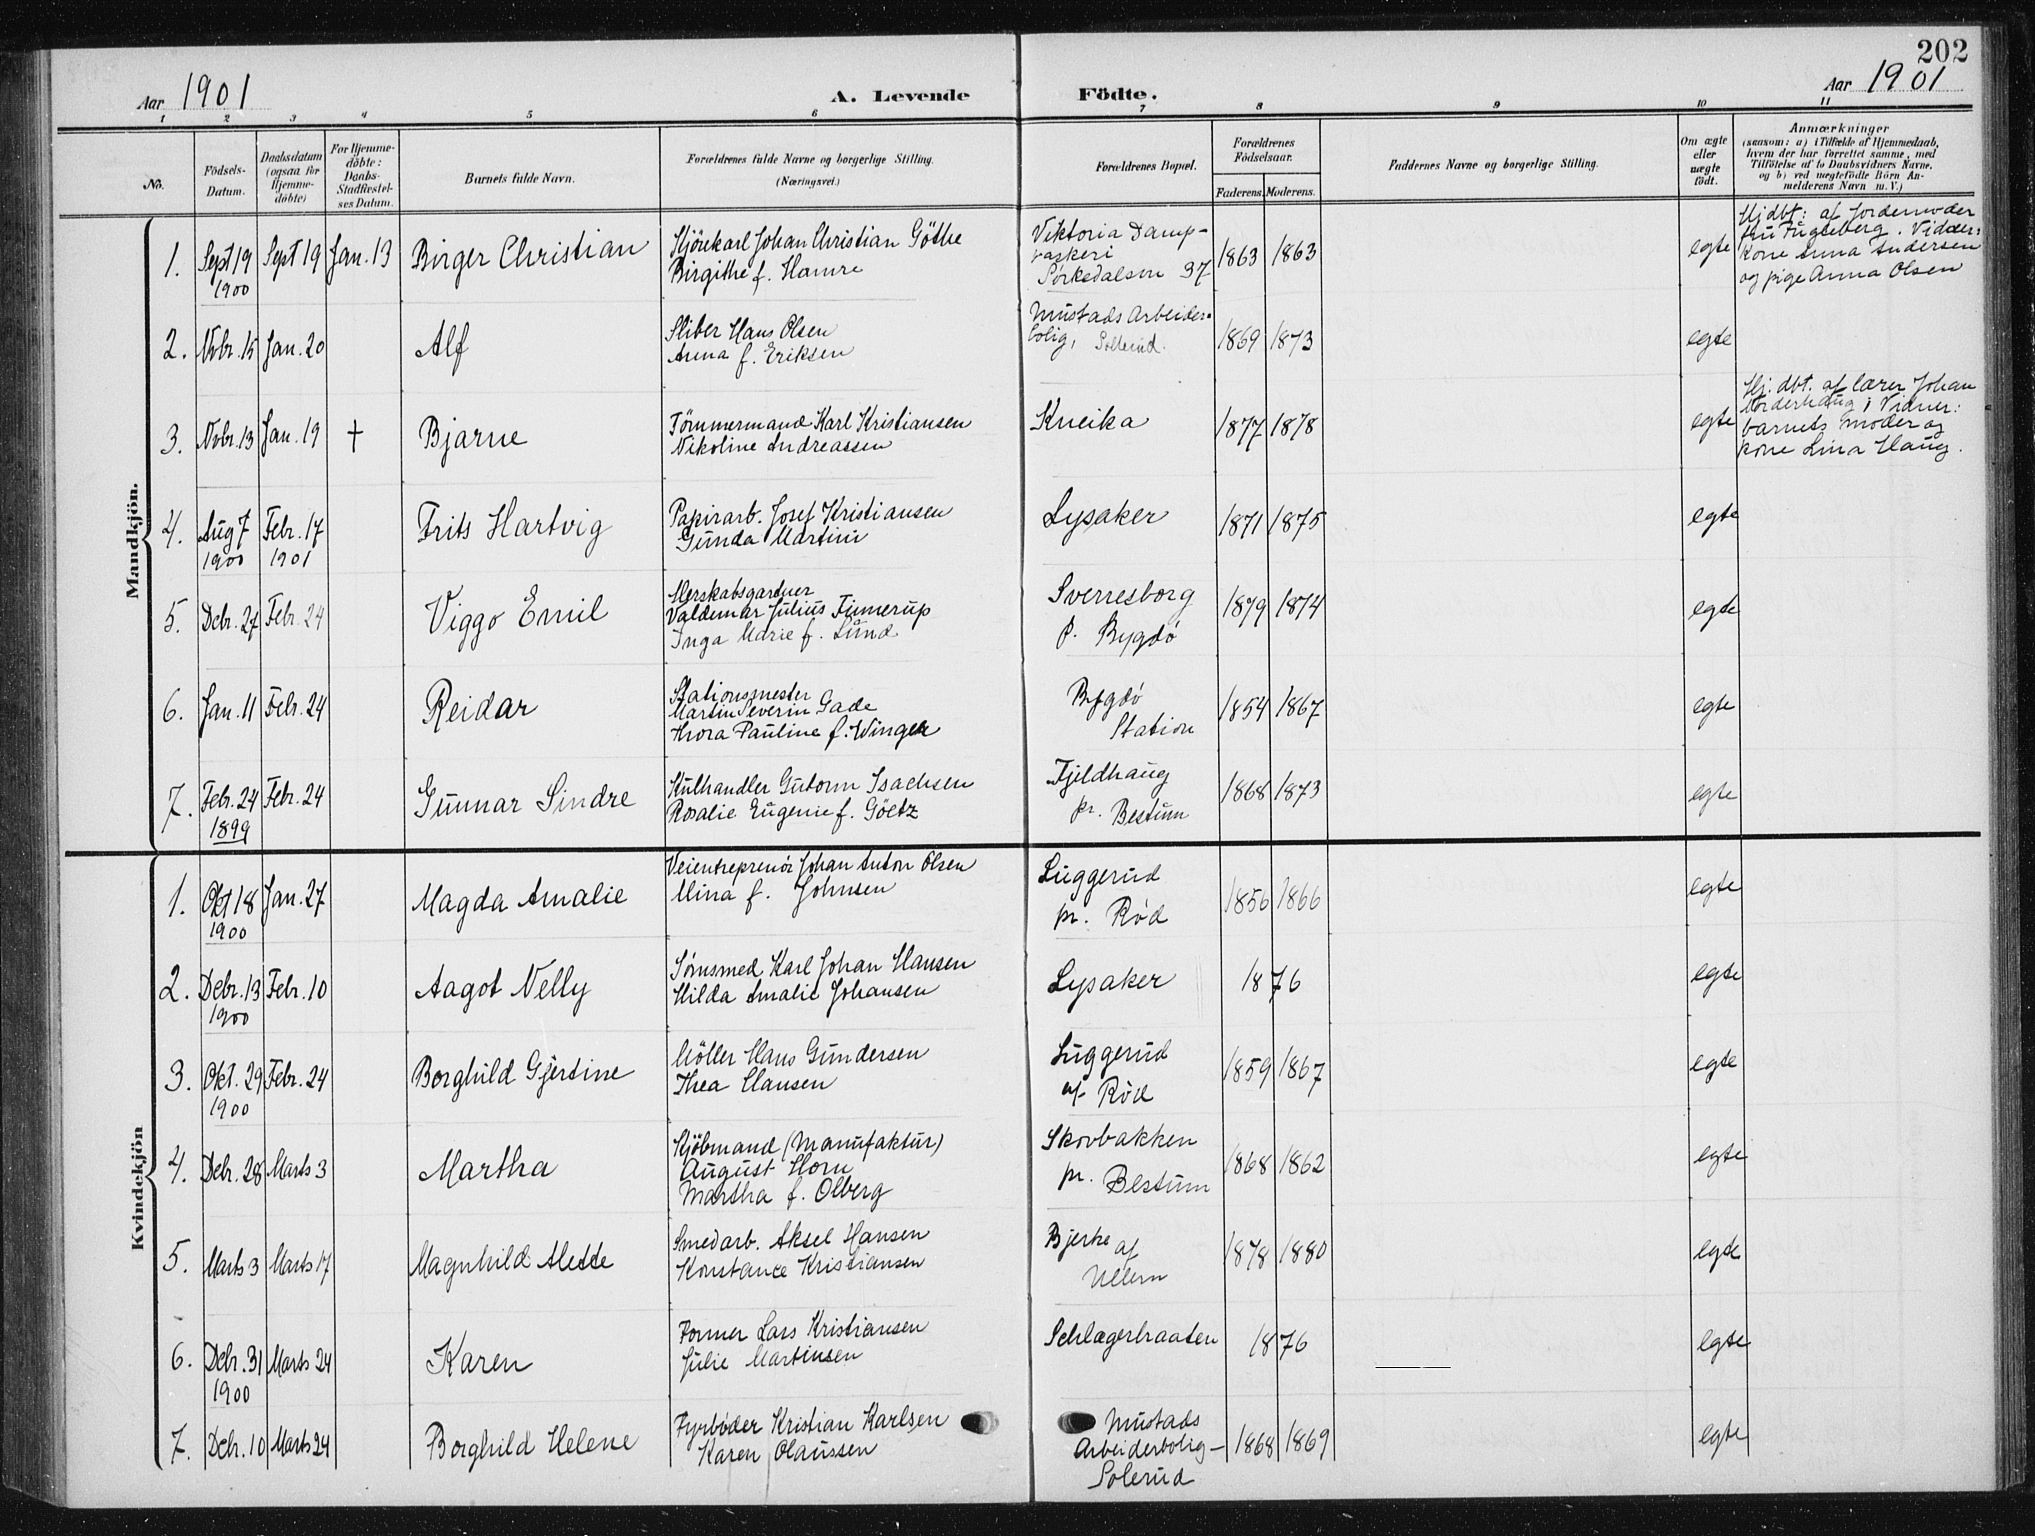 202
Aar 1901
A. Levende
Födte.
Aar 1901
1 2 3 4 5 6 7 8 9 10 11
No.
Födsels-Datum.
Daabsdatum (ogsaa for Hjemme-döbte)
For Hjemme-döbte: Daabs-Stadfæstel-ses Datum.
Barnets fulde Navn.
Forældrenes fulde Navne og borgerlige Stilling.
(Næringsvei.)
Forældrenes Bopæl.
Forældrenes Födselsaar.
Faderens. Moderens.
Faddernes Navne og borgerlige Stilling.
Om ægte eller uægte födt.
Anmærkninger
(saasom: a) i Tilfælde af Hjemmedaab,
hvem der har forrettet samme, med
Tilföielse af to Daabsvidners Navne,
og b) ved uægtefödte Börn An-
melderens Navn m. V.)
Mandkjön.
1. Sept 19 1900 Sept 19 Jan. 13 Birger Christian
Kjörekarl Johan Christian Göthe
Birgithe f. Hamre
Viktoria Damp-
vaskeri
Sørkedalsvn 37
1863 1863 egte
Hjdbt: af Jordemoder
fru Fugleberg. Vidner:
Kone Anna Andersen
og pige Anna Olsen
2. Nvbr. 15 Jan. 20 Alf
Sliber Hans Olsen
Anna f. Eriksen
Mustads Arbeider-
bolig, Sollerud.
1869 1873 egte
3. Nvbr. 13 Jan. 19 † Bjarne
Tömmermand Karl Kristiansen
Nikoline Andreassen
Kneika
1877 1878 egte
Hj. dbt. af lærer Johan
Norderhaug; Vidner:
barnets moder og
kone Lina Haug.
4. Aug 7 1900 Febr. 17 1901 Frits Hartvig
Papirarb. Josef Kristiansen
Gunda Martini
Lysaker
1871 1875 egte
5. Debr. 27 Febr. 24 Viggo Emil
Herskabsgartner
Valdemar Julius Finnerup
Inga Marie f. Lund
Sverresborg
p. Bygdö
1879 1874 egte
6. Jan. 11 Febr. 24 Reidar
Stationsmester
Martin Severin Gade
Thora Pauline f. Winger
Bygdö
Station
1854 1867 egte
7. Febr. 24 1899 Febr. 24 Gunnar Sindre
Kulhandler Gutorm Isachsen
Rosalie Eugenie f. Göetz
Fjeldhaug
pr. Bestum
1868 1873 egte
Kvindekjön
1. Okt 18 1900 Jan. 27 Magda Amalie
Veientreprenör Johan Anton Olsen
Mina f. Johnsen
Luggerud
pr. Röd
1856 1866 egte
2. Debr. 13 1900 Febr. 10 Aagot Nelly
Sømsmed Karl Johan Hansen
Hilda Amalie Johansen
Lysaker
1876 egte
3. Okt. 29 1900 Febr. 24 Borghild Gjertine
Möller Hans Gundersen
Thea Hansen
Luggerud
af Röd
1859 1867 egte
4. Debr. 28 Marts 3 Martha
Kjöbmand (Manufaktur)
August Horn
Martha f. Olberg
Skovbakken
pr. Bestum
1868 1862 egte
5. Marts 3 Marts 17 Magnhild Alette
Smedarb. Aksel Hansen
Konstance Kristiansen
Bjerke af
Ullern
1878 1880 egte
6. Debr. 31 1900 Marts 24 Karen
Former Lars Kristiansen
Julie Martinsen
Schlagerbraaten
1876 egte
7. Debr. 10 Marts 24 Borghild Helene
Fyrbøder Kristian Karlsen
Karen Olaussen
Mustads
Arbeiderbolig-
Solerud
1868 1869 egte